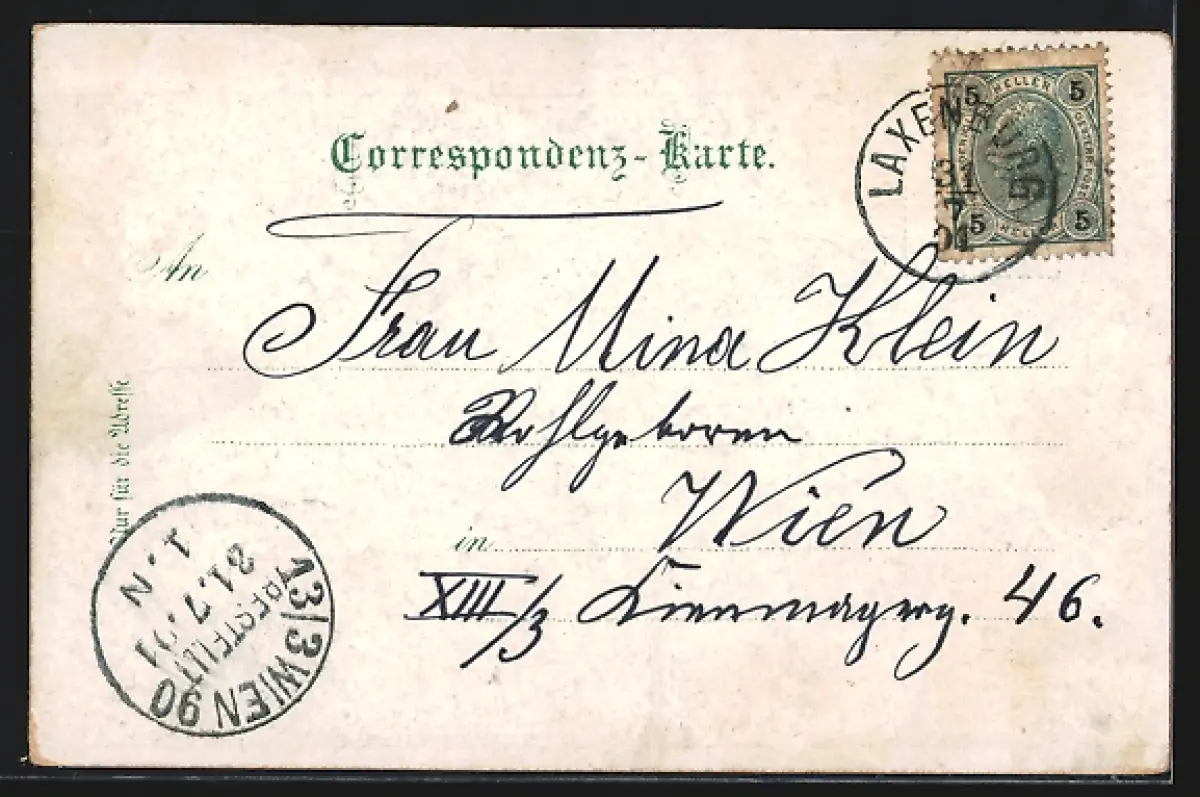 Correspondenz-Karte.
5 HELLER 5
5 HELLER 5
LAXENBURG
01
An
Frau Mina Klein
Wohlgeboren
Nur für die Adresse
in Wien
XIII/3 46.
13/3 WIEN 90
BESTELLT
31.7.01
1.N